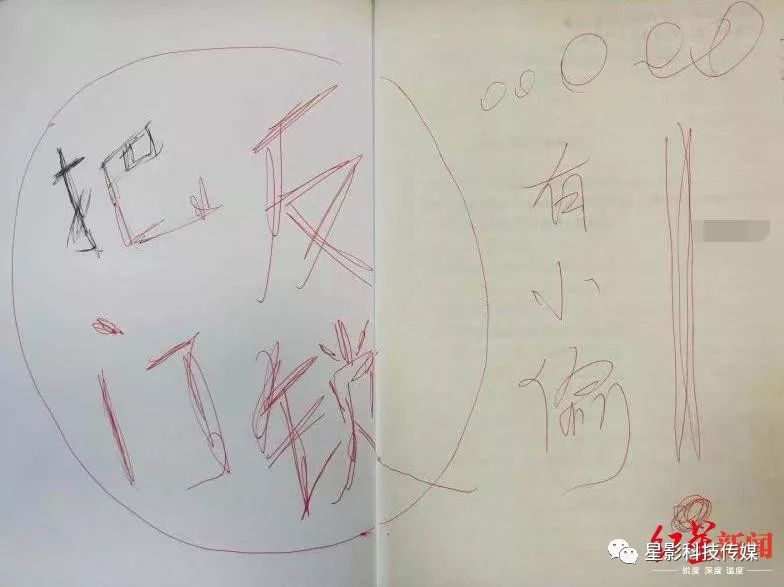 把门
反锁
有小偷
红星新闻
星影科技传媒
锐度 深度 温度